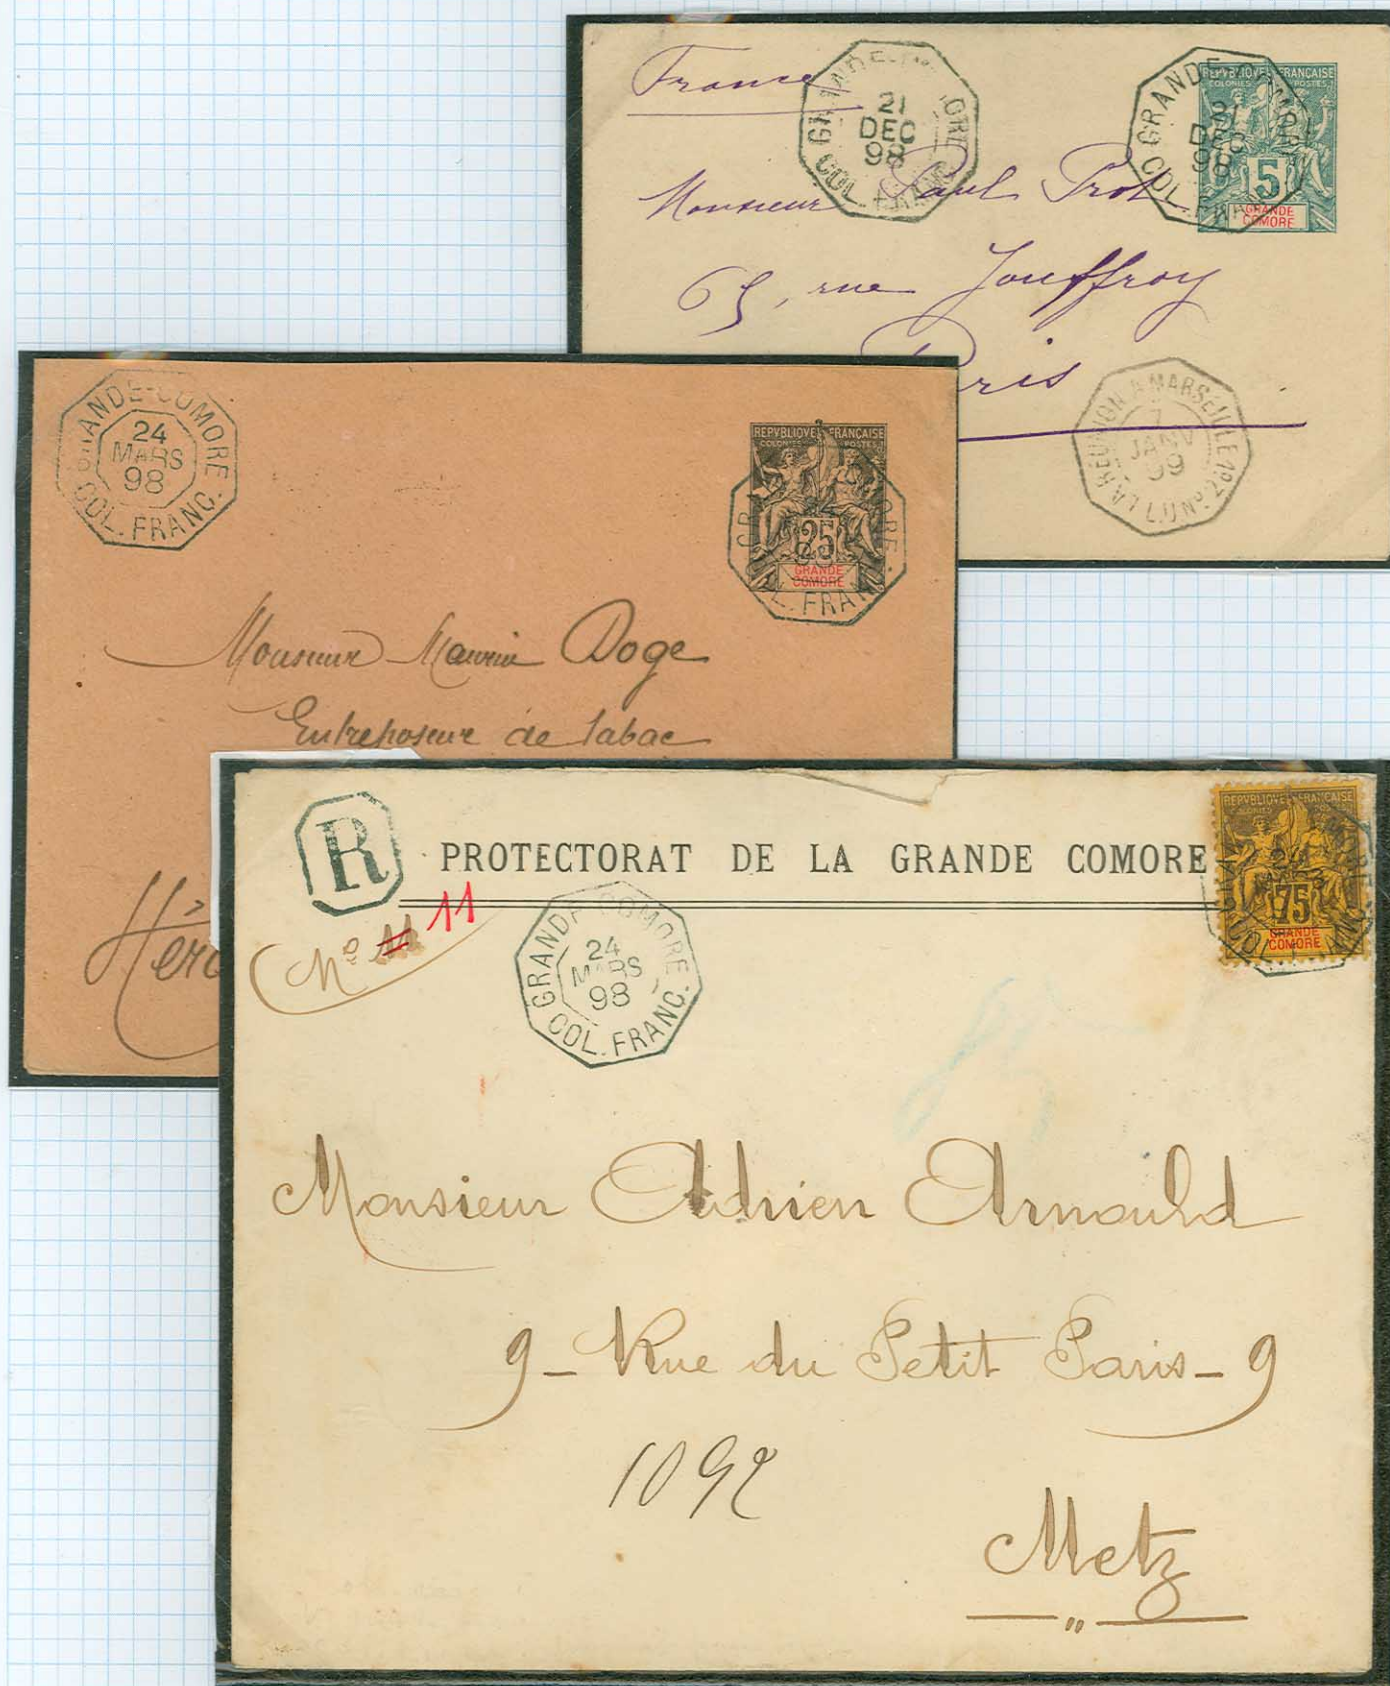 France
GRANDE-COMORE
21
DEC
98
COL. FRANC.
GRANDE-COMORE
21
DEC
98
COL. FRANC.
REPVBLIQVE FRANÇAISE
COLONIES POSTES
5
GRANDE
COMORE
Monsieur Paul Prot
65, rue Jouffroy
Paris
LA RÉUNION A MARSEILLE
7
JANV
99
L.U Nº
GRANDE-COMORE
24
MARS
98
COL. FRANC.
REPVBLIQVE FRANÇAISE
COLONIES POSTES
25
GRANDE
COMORE
COL. FRANC.
Monsieur Maurin Doge
Entreposeur de Tabac
R
PROTECTORAT DE LA GRANDE COMORE
REPVBLIQVE FRANÇAISE
COLONIES POSTES
75
GRANDE
COMORE
Nº 11
GRANDE-COMORE
24
MARS
98
COL. FRANC.
Monsieur Adrien Arnould
9 - Rue du Petit Paris - 9
1092
Metz